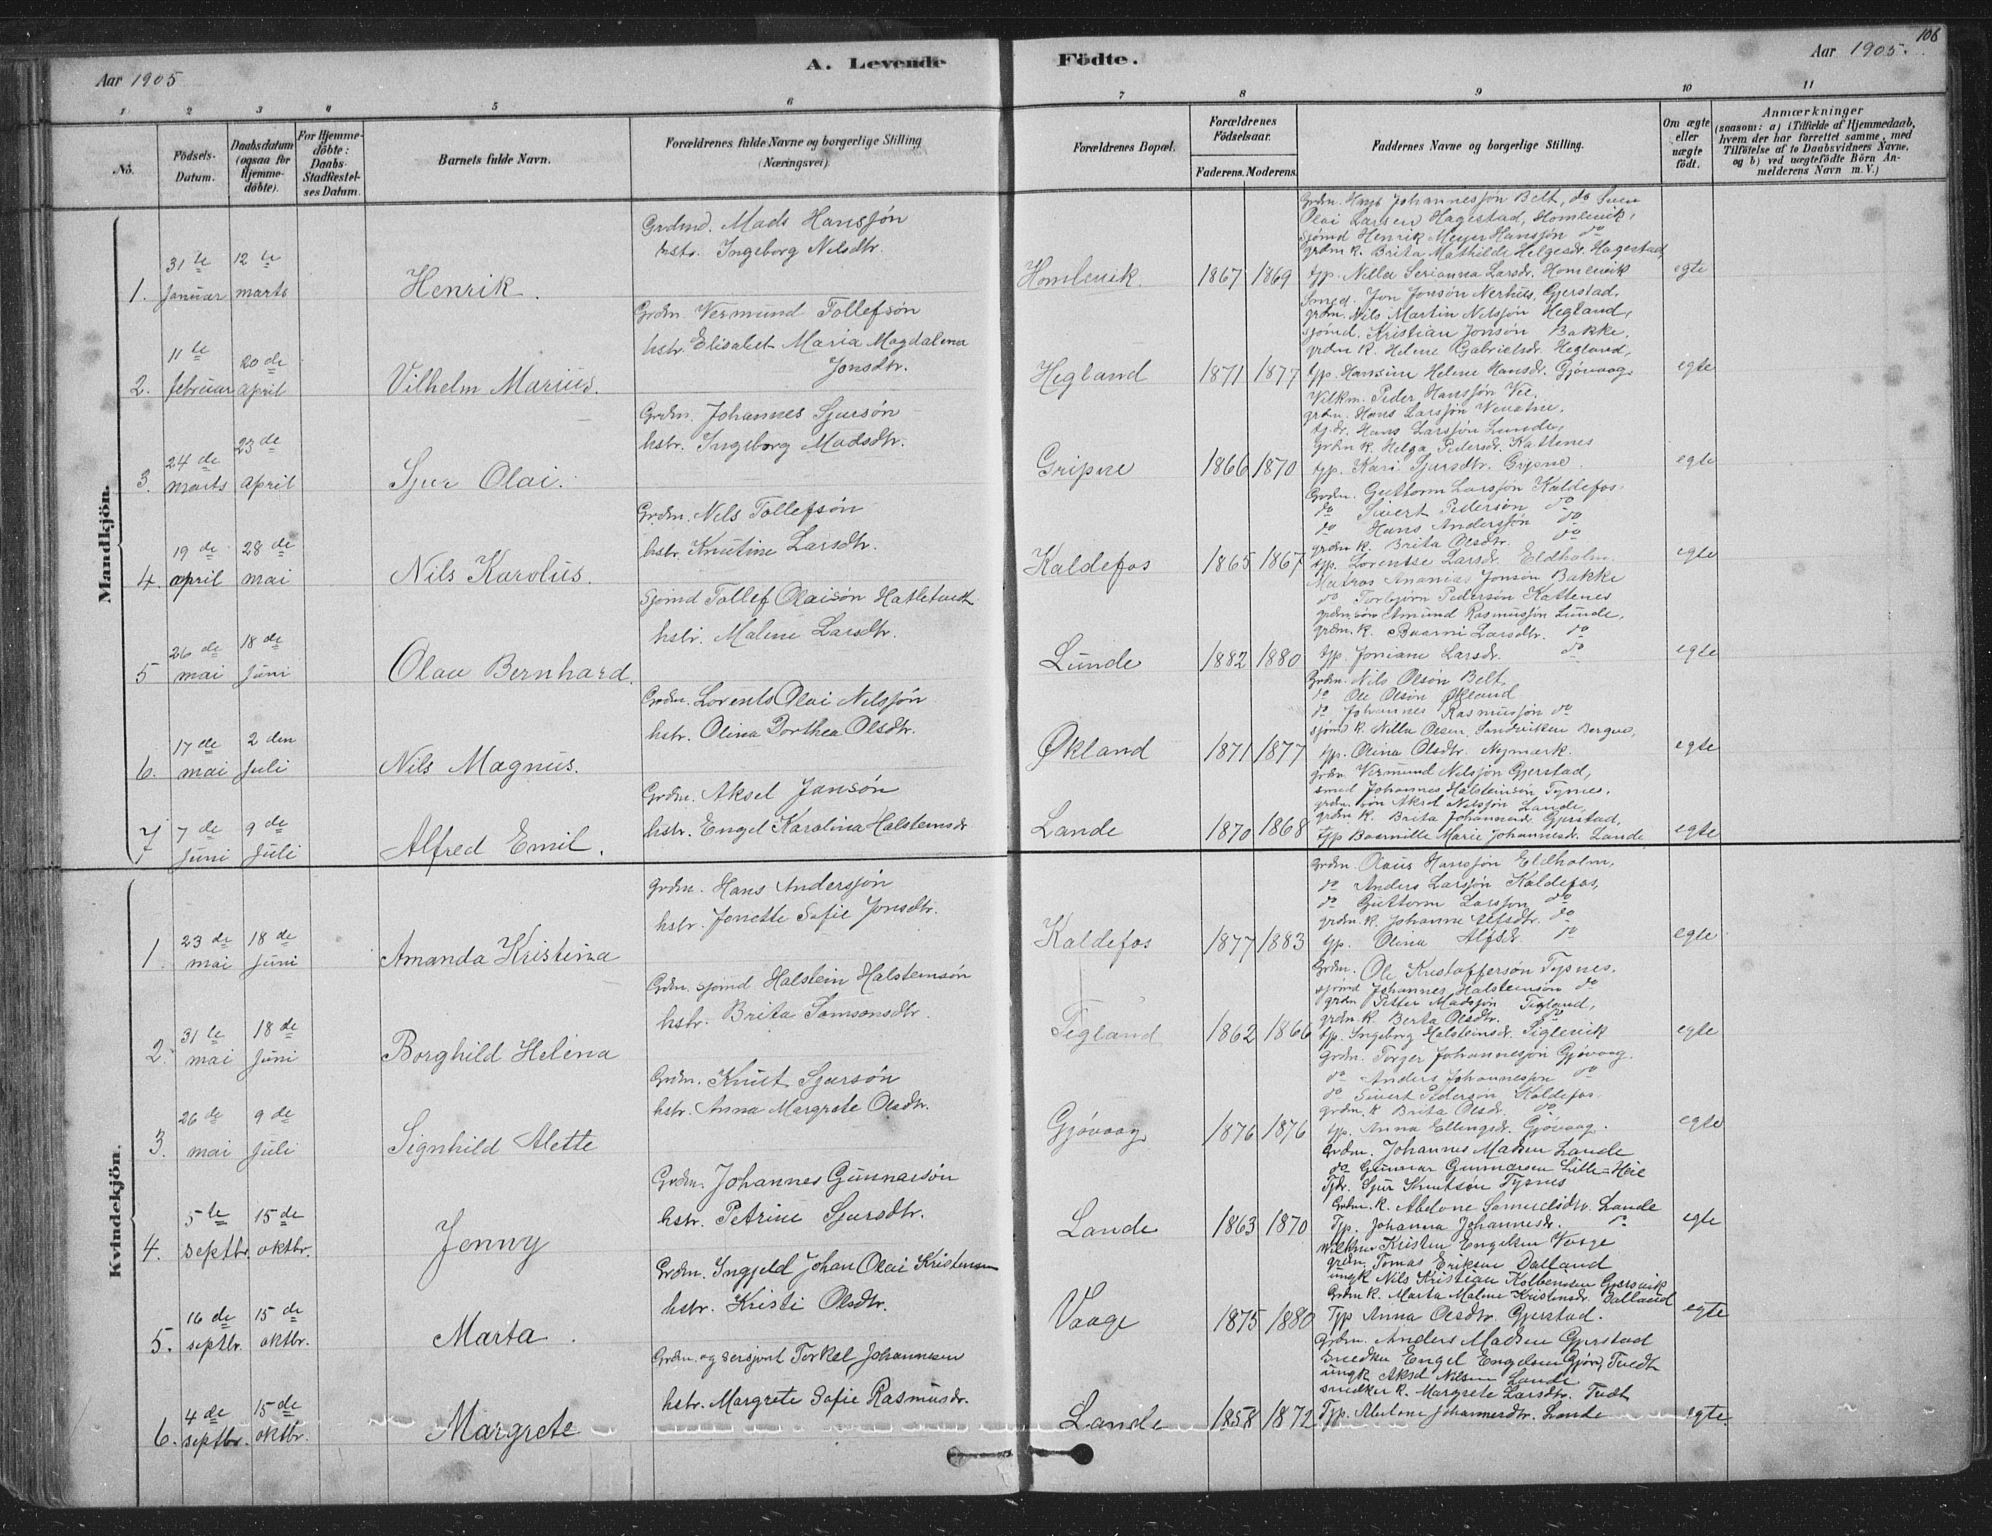 106
Aar 1905
A. Levende
Födte.
Aar 1905.
1 2 3 4 5 6 7 8 9 10 11
No.
Födsels-Datum.
Daabsdatum (ogsaa for Hjemmedöbte).
For Hjemmedöbte: Daabs-Stadfæstelses Datum.
Barnets fulde Navn.
Forældrenes fulde Navne og borgerlige Stilling (Næringsvei).
Forældrenes Bopæl.
Forældrenes Födselsaar.
Faderens. Moderens.
Faddernes Navne og borgerlige Stilling.
Om ægte eller uægte födt.
Anmærkninger (saasom: a) i Tilfælde af Hjemmedaab, hvem der har forrettet samme, med Tilföielse af to Daabsvidners Navne, og b) ved uægtefödte Börn Anmelderens Navn m. V.)
Mandkjön.
1. 31te Januar 12te marts
Henrik.
Grdmd. Mads Hansjön
hstr. Ingeborg Nilsdtr.
Homlevik 1867 1869
Grdm. Hans Johannesjön Belt, do Sven
Olai Larsen Hagestad, Homlevik,
Sjömd Henrik Meyer Hansjön do
grdm k. Brita Mathilde Helgesdr. Hagestad,
tjp. Nilla Serianna Larsdr. Homlevik
egte
2. 11te februar 20de april
Vilhelm Marius.
Grdm. Vermund Tollefsön
hstr. Elisabet Maria Magdalena
Jonsdtr.
Hegland 1871 1877
Smed. Jon Jonsön Nerhus, Gjerstad,
grdm. Nils Martin Nilsjön Hegland,
sjömd. Kristian Jonsön Bakke,
grdm k. Helene Gabrielsdr. Hegland,
tjp. Hansine Helene Hansdr. Gjövaag
egte
3. 24de marts 23de april
Sjur Olai.
Grdm. Johannes Sjursön
hstr. Ingeborg Madsdtr.
Gripne 1866 1870
Vilkm. Peder Hansjön Vee,
grdm. Hans Larsjön
tjdr. Hans Larsjön Lunde,
Grdm k. Helga Pedersdr. Kattenes
tjp. Kari Sjursdtr. Gripne.
egte
4. 19de april 28de mai
Nils Karolus.
Grdm. Nils Tollefsön
hstr. Knutine Larsdtr.
Kaldefos 1865 1867
Grdm. Guttorm Larsjön Kaldefos.
do Sivert Pedersön do
do Hans Andersjön do
grdm k. Brita Olsdtr. do
tjp. Lorentse Larsdr. Eldholm.
egte
5 26de mai 18de Juni
Olav Bernhard.
Sjömd Tollef Olaisön Hatletvedt
hstr. Malene Larsdtr.
Lunde 1882 1880
Matros Ananias Jonsön Bakke
do Torbjörn Pedersön Kattenes
grdm.sön Amund Rasmusjön Lunde,
grdm. k. Larsdtr. do
tjp. Joniane Larsdr. do
egte
6. 17de mai 2den Juli
Nils Magnus.
Grdm. Lorents Olai Nilsjön
hstr. Olina Dorthea Olsdtr.
Økland 1871 1877
Grdm. Nils Olsön Belt
do Ole Olsön Økland
do Johannes Rasmusjön do
sjömd k. Nilla Olsen, Sandviken Bergen,
tjp. Olina Olsdtr. Nymark.
egte
7 7de Juni 9de Juli
Alfred Emil.
Grdm. Aksel Jansön
hstr. Engel Karolina Halsteinsdr
Lande 1870 1868
grdm Vermund Nilsjön Gjerstad,
smed Johannes Halsteinsön Tysnes,
grdm. sön Aksel Nilsjön Lande,
grdm k. Brita Johannesdr Gjerstad,
tjp Marie Johannesdr. Lande
egte
Kvindekjön.
1. 23de mai 18de Juni
Amanda Kristina
Grdm. Hans Andersjön
hstr. Jonette Sofie Jonsdtr.
Kaldefos 1877 1883
Grdm. Olaus Hansjön Eldholm,
do Anders Larsjön Kaldefos,
do Guttorm Larsjon do
grdm. k. Johanne Alfsdtr. do
tjp. Olina Alfsdr do
egte
2. 31te mai 18de Juni
Borghild Helena
Grdm. sjömd Halstein Halsteinsön
hstr. Brita Samsonsdtr.
Tegland 1862 1866
Grdm. Ole Kristoffersön Tysnes.
sjömd Johannes Halsteinsön do
grdm Petter Madsjön Tegland,
grdm k. Berta Olsdtr. do
tjp. Ingeborg Halsteinsdr. Teglevik
egte
3. 26de mai 9de Juli
Segnhild Alette
Grdm. Knut Sjursön
hstr. Anna Margrete Olsdtr.
Gjövaag 1876 1876
Grdm. Torger Johannesjön Gjövaag.
do Anders Johannesjön do
do Sivert Pedersön Kaldefos.
grdm. k Brita Olsdr. do
tjp. Anna Ellingsdr. Gjövaag.
egte
4. 5te septbr. 15de oktbr.
Jenny
Grdm. Johannes Gunnarsön
hstr. Petrine Sjursdtr.
Lande 1863 1870
Grdm. Johannes Madsen Lande
do Gunnar Gunnarsen Lille-Heie
Tjdr. Sjur Knutsön Tysnes
Grdm. k. Abelone Samuelsdtr. Lande
Tjp. Johanna Johannesdr. do
egte
5. 16de septbr. 15de oktbr.
Marta.
Grdm. Ingjeld Johan Olai Kristensen
hstr. Kristi Olsdtr.
Vaage 1875 1880
Vilkmr Kristen Engelsen Vaage
grdm. Tomas Eriksen Dalland
ungk Nils Kristian Kolbensen Gjersvik
Grdm k. Marta Malene Kristensdr. Dalland
Tjp Anna Olsdtr. Gjerstad.
egte
6. 4de septbr. 15de oktbr.
Margrete
Grdm. og sersjant Torkel Johannesen
hstr. Margrete Sofie Rasmusdr.
Lande 1858 1872
Grdm. Anders Madsen Gjerstad
Snedker Engel Engelsen Gjön, Tvedt
ungk Aksel Nilsen Lande
snedker k. Margrete Larsdtr. Tvedt
Tjp. Abelone Johannesdtr. Lande
egte.